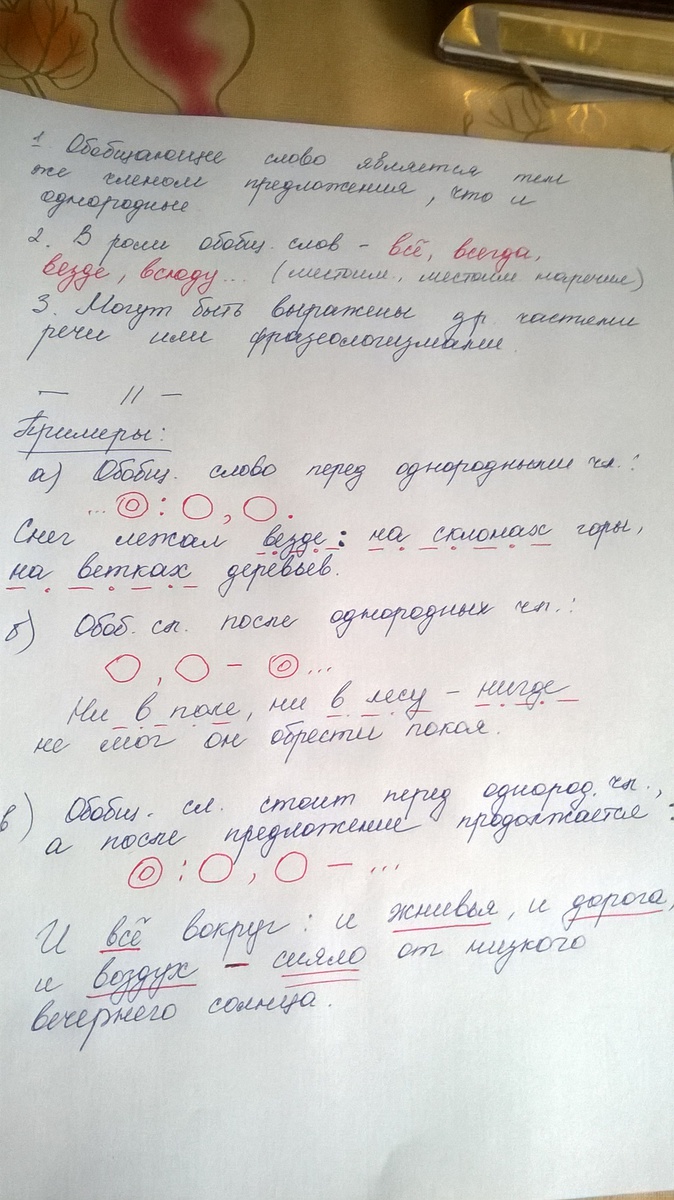 1 Обобщающее слово является тем
же членом предложения, что и
однородные.
2. В роли обобщ. слов – всё, всегда,
везде, всюду... (местоим., местоим. наречия)
3. Могут быть выражены др. частями
речи или фразеологизмами.
— 11 —
Примеры:
а) Обобщ. слово перед однородными чл.:
... ⊙ : ○, ○.
Снег лежал везде: на склонах горы,
на ветках деревьев.
б) Обоб. сл. после однородных чл.:
○, ○ – ⊙...
Ни в поле, ни в лесу – нигде
не мог он обрести покоя.
в) Обобщ. сл. стоит перед однород. чл.,
а после предложение продолжается:
⊙ : ○, ○ – ...
И всё вокруг: и жнивья, и дорога,
и воздух – сияло от низкого
вечернего солнца.